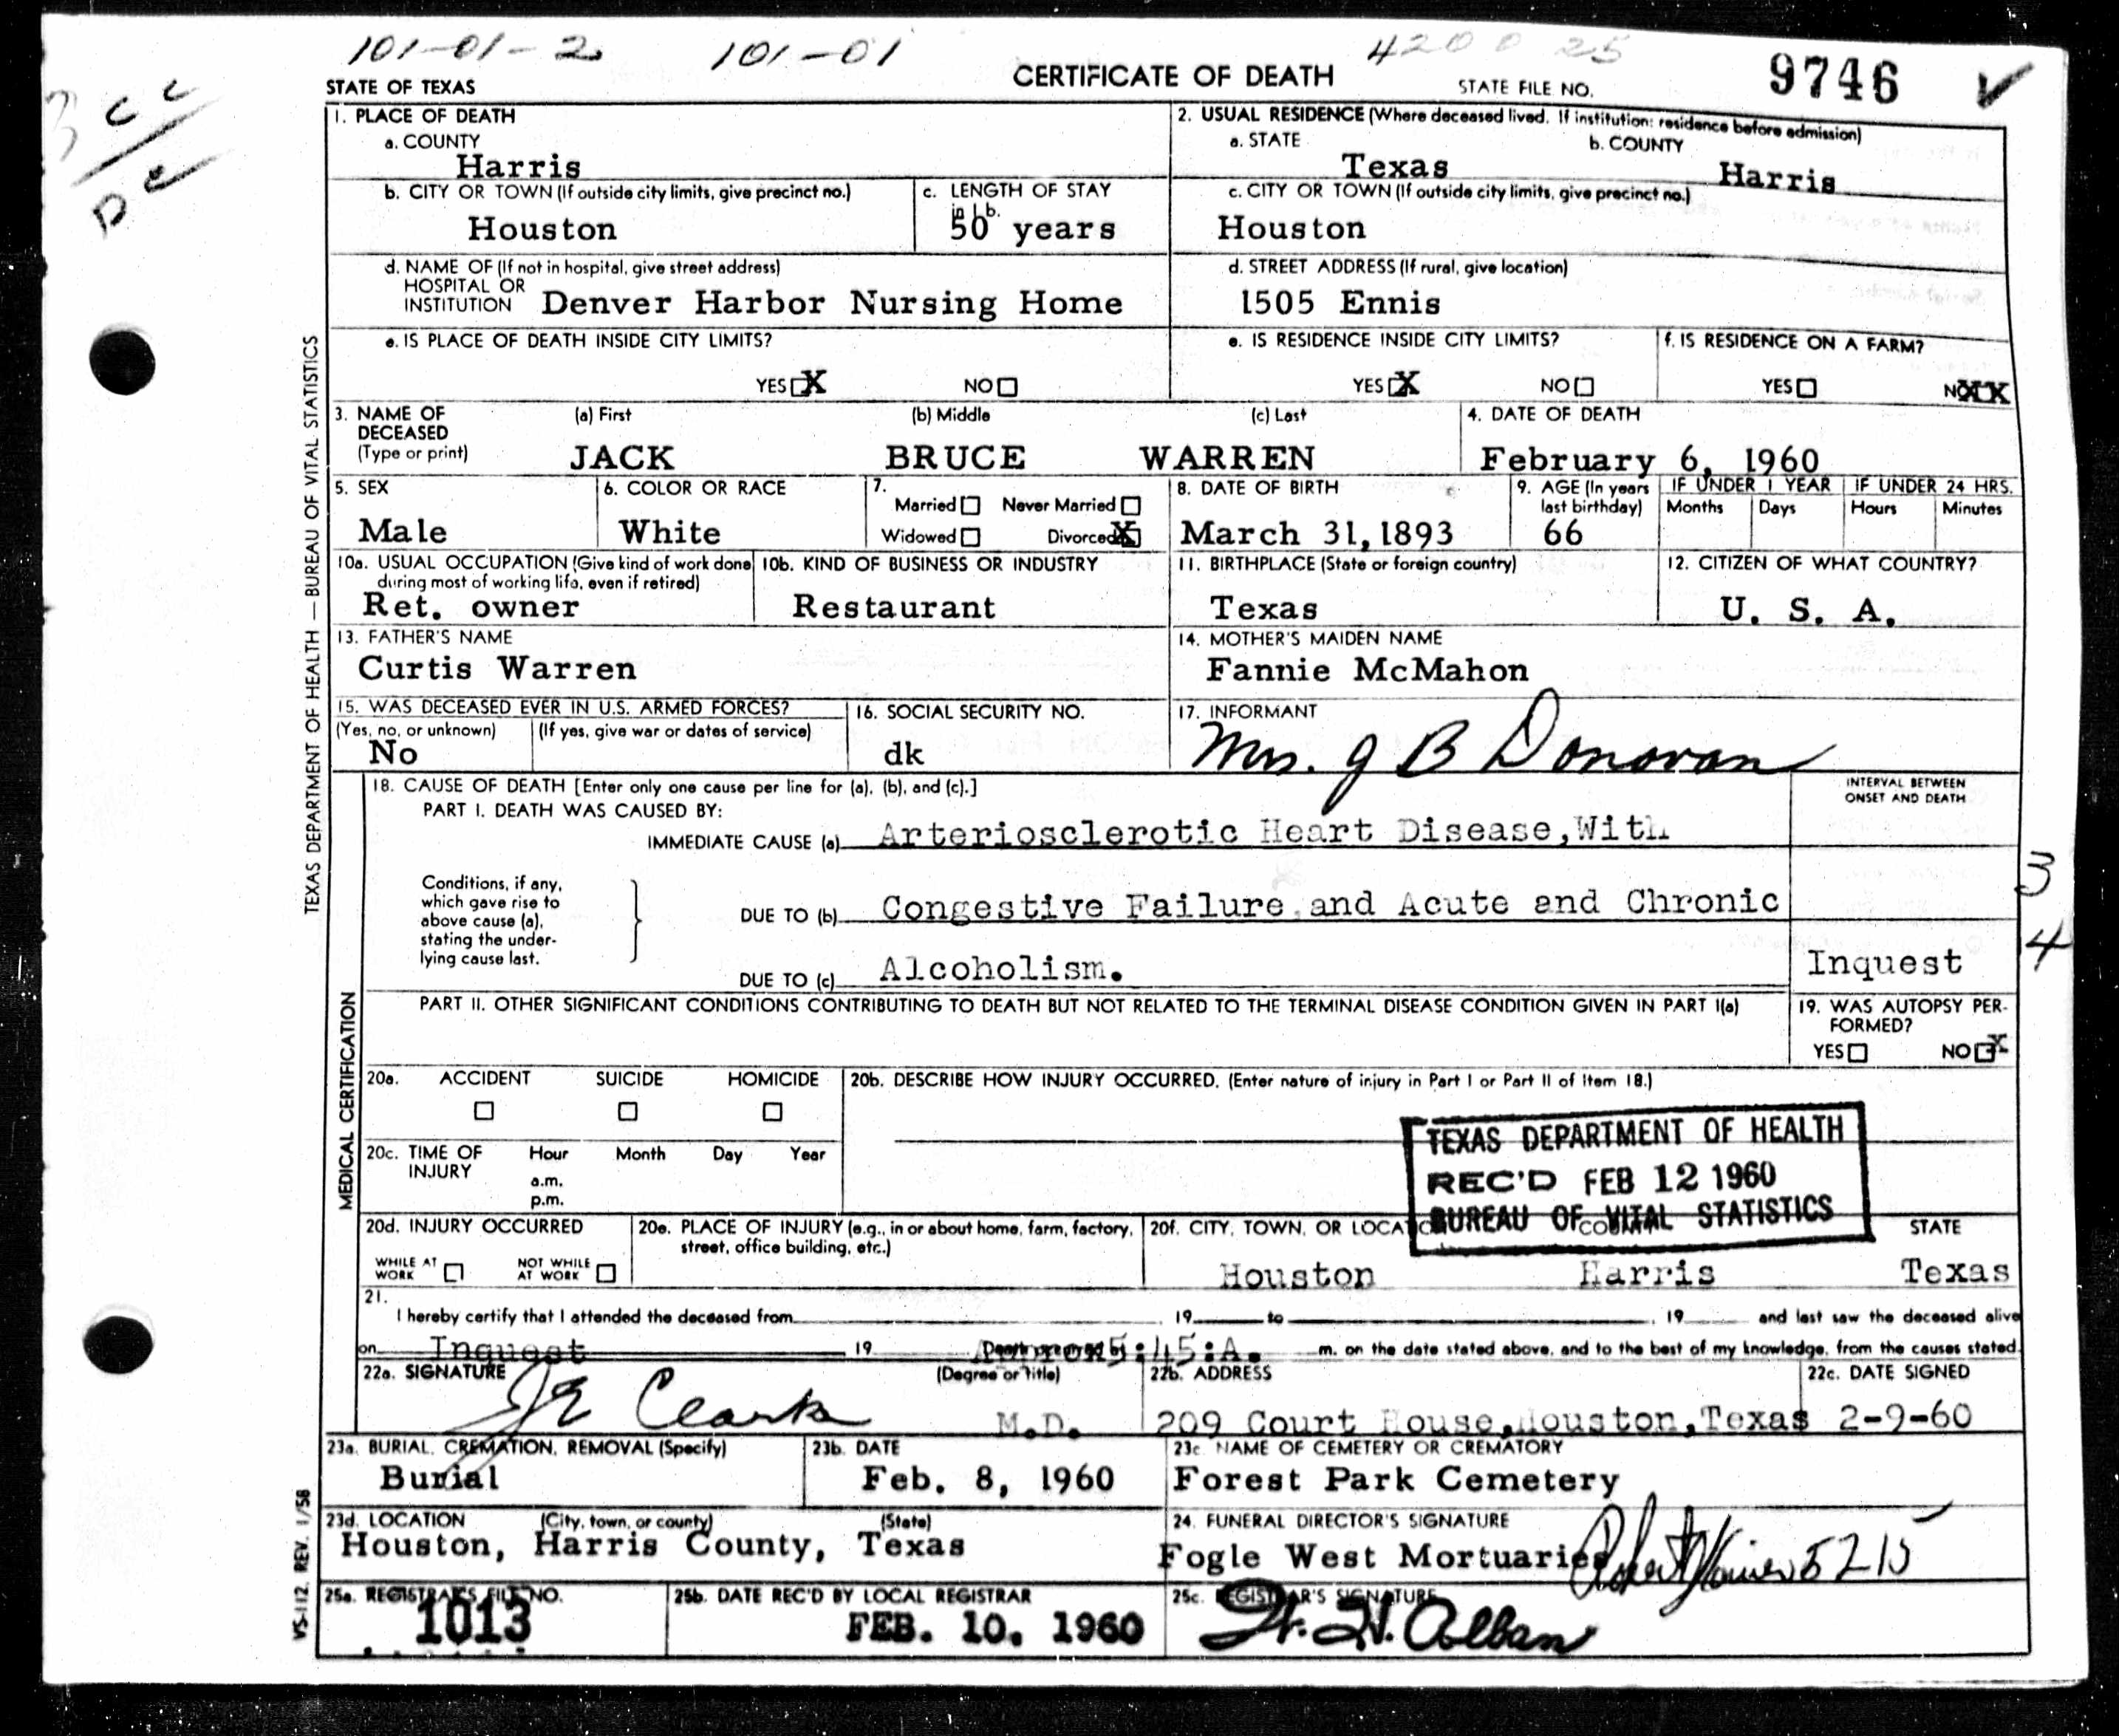 101-01-2 101-01 4200 25
STATE OF TEXAS CERTIFICATE OF DEATH STATE FILE NO. 9746
3 c c
D c
1. PLACE OF DEATH
a. COUNTY
Harris
2. USUAL RESIDENCE (Where deceased lived. If institution: residence before admission)
a. STATE b. COUNTY
Texas Harris
b. CITY OR TOWN (If outside city limits, give precinct no.) c. LENGTH OF STAY in 1b.
Houston 50 years
c. CITY OR TOWN (If outside city limits, give precinct no.)
Houston
d. NAME OF (If not in hospital, give street address)
HOSPITAL OR
INSTITUTION Denver Harbor Nursing Home
d. STREET ADDRESS (If rural, give location)
1505 Ennis
e. IS PLACE OF DEATH INSIDE CITY LIMITS?
YES X NO
e. IS RESIDENCE INSIDE CITY LIMITS? f. IS RESIDENCE ON A FARM?
YES X NO YES NO XX
3. NAME OF DECEASED (Type or print) (a) First (b) Middle (c) Last
JACK BRUCE WARREN
4. DATE OF DEATH
February 6, 1960
5. SEX 6. COLOR OR RACE 7.
Married Never Married
Widowed Divorced X
Male White
8. DATE OF BIRTH 9. AGE (In years last birthday) IF UNDER 1 YEAR IF UNDER 24 HRS.
Months Days Hours Minutes
March 31, 1893 66
10a. USUAL OCCUPATION (Give kind of work done during most of working life, even if retired) 10b. KIND OF BUSINESS OR INDUSTRY
Ret. owner Restaurant
11. BIRTHPLACE (State or foreign country) 12. CITIZEN OF WHAT COUNTRY?
Texas U. S. A.
13. FATHER'S NAME
Curtis Warren
14. MOTHER'S MAIDEN NAME
Fannie McMahon
15. WAS DECEASED EVER IN U.S. ARMED FORCES? 16. SOCIAL SECURITY NO.
(Yes, no, or unknown) (If yes, give war or dates of service)
No dk
17. INFORMANT
Mrs. J B Donovan
TEXAS DEPARTMENT OF HEALTH — BUREAU OF VITAL STATISTICS
MEDICAL CERTIFICATION
18. CAUSE OF DEATH [Enter only one cause per line for (a), (b), and (c).] INTERVAL BETWEEN ONSET AND DEATH
PART I. DEATH WAS CAUSED BY:
IMMEDIATE CAUSE (a) Arteriosclerotic Heart Disease,With
Conditions, if any,
which gave rise to
above cause (a),
stating the under-
lying cause last.
DUE TO (b) Congestive Failure and Acute and Chronic
DUE TO (c) Alcoholism. Inquest
3
4
PART II. OTHER SIGNIFICANT CONDITIONS CONTRIBUTING TO DEATH BUT NOT RELATED TO THE TERMINAL DISEASE CONDITION GIVEN IN PART I(a)
19. WAS AUTOPSY PER-
FORMED?
YES NO X
20a. ACCIDENT SUICIDE HOMICIDE
20b. DESCRIBE HOW INJURY OCCURRED. (Enter nature of injury in Part I or Part II of Item 18.)
20c. TIME OF INJURY Hour Month Day Year
a.m.
p.m.
TEXAS DEPARTMENT OF HEALTH
REC'D FEB 12 1960
BUREAU OF VITAL STATISTICS
20d. INJURY OCCURRED
WHILE AT WORK NOT WHILE AT WORK
20e. PLACE OF INJURY (e.g., in or about home, farm, factory, street, office building, etc.)
20f. CITY, TOWN, OR LOCATION COUNTY STATE
Houston Harris Texas
21.
I hereby certify that I attended the deceased from 19 to , 19 and last saw the deceased alive
on Inquest 19 Death occurred at 5:45:A. m. on the date stated above, and to the best of my knowledge, from the causes stated.
22a. SIGNATURE (Degree or Title) 22b. ADDRESS 22c. DATE SIGNED
J E Clark M.D. 209 Court House,Houston,Texas 2-9-60
23a. BURIAL, CREMATION, REMOVAL (Specify) 23b. DATE 23c. NAME OF CEMETERY OR CREMATORY
Burial Feb. 8, 1960 Forest Park Cemetery
23d. LOCATION (City, town, or county) (State)
Houston, Harris County, Texas
24. FUNERAL DIRECTOR'S SIGNATURE
Fogle West Mortuaries 5215
25a. REGISTRAR'S FILE NO. 25b. DATE REC'D BY LOCAL REGISTRAR 25c. REGISTRAR'S SIGNATURE
1013 FEB. 10. 1960 W. H. Alban
VS-112 REV. 1/58